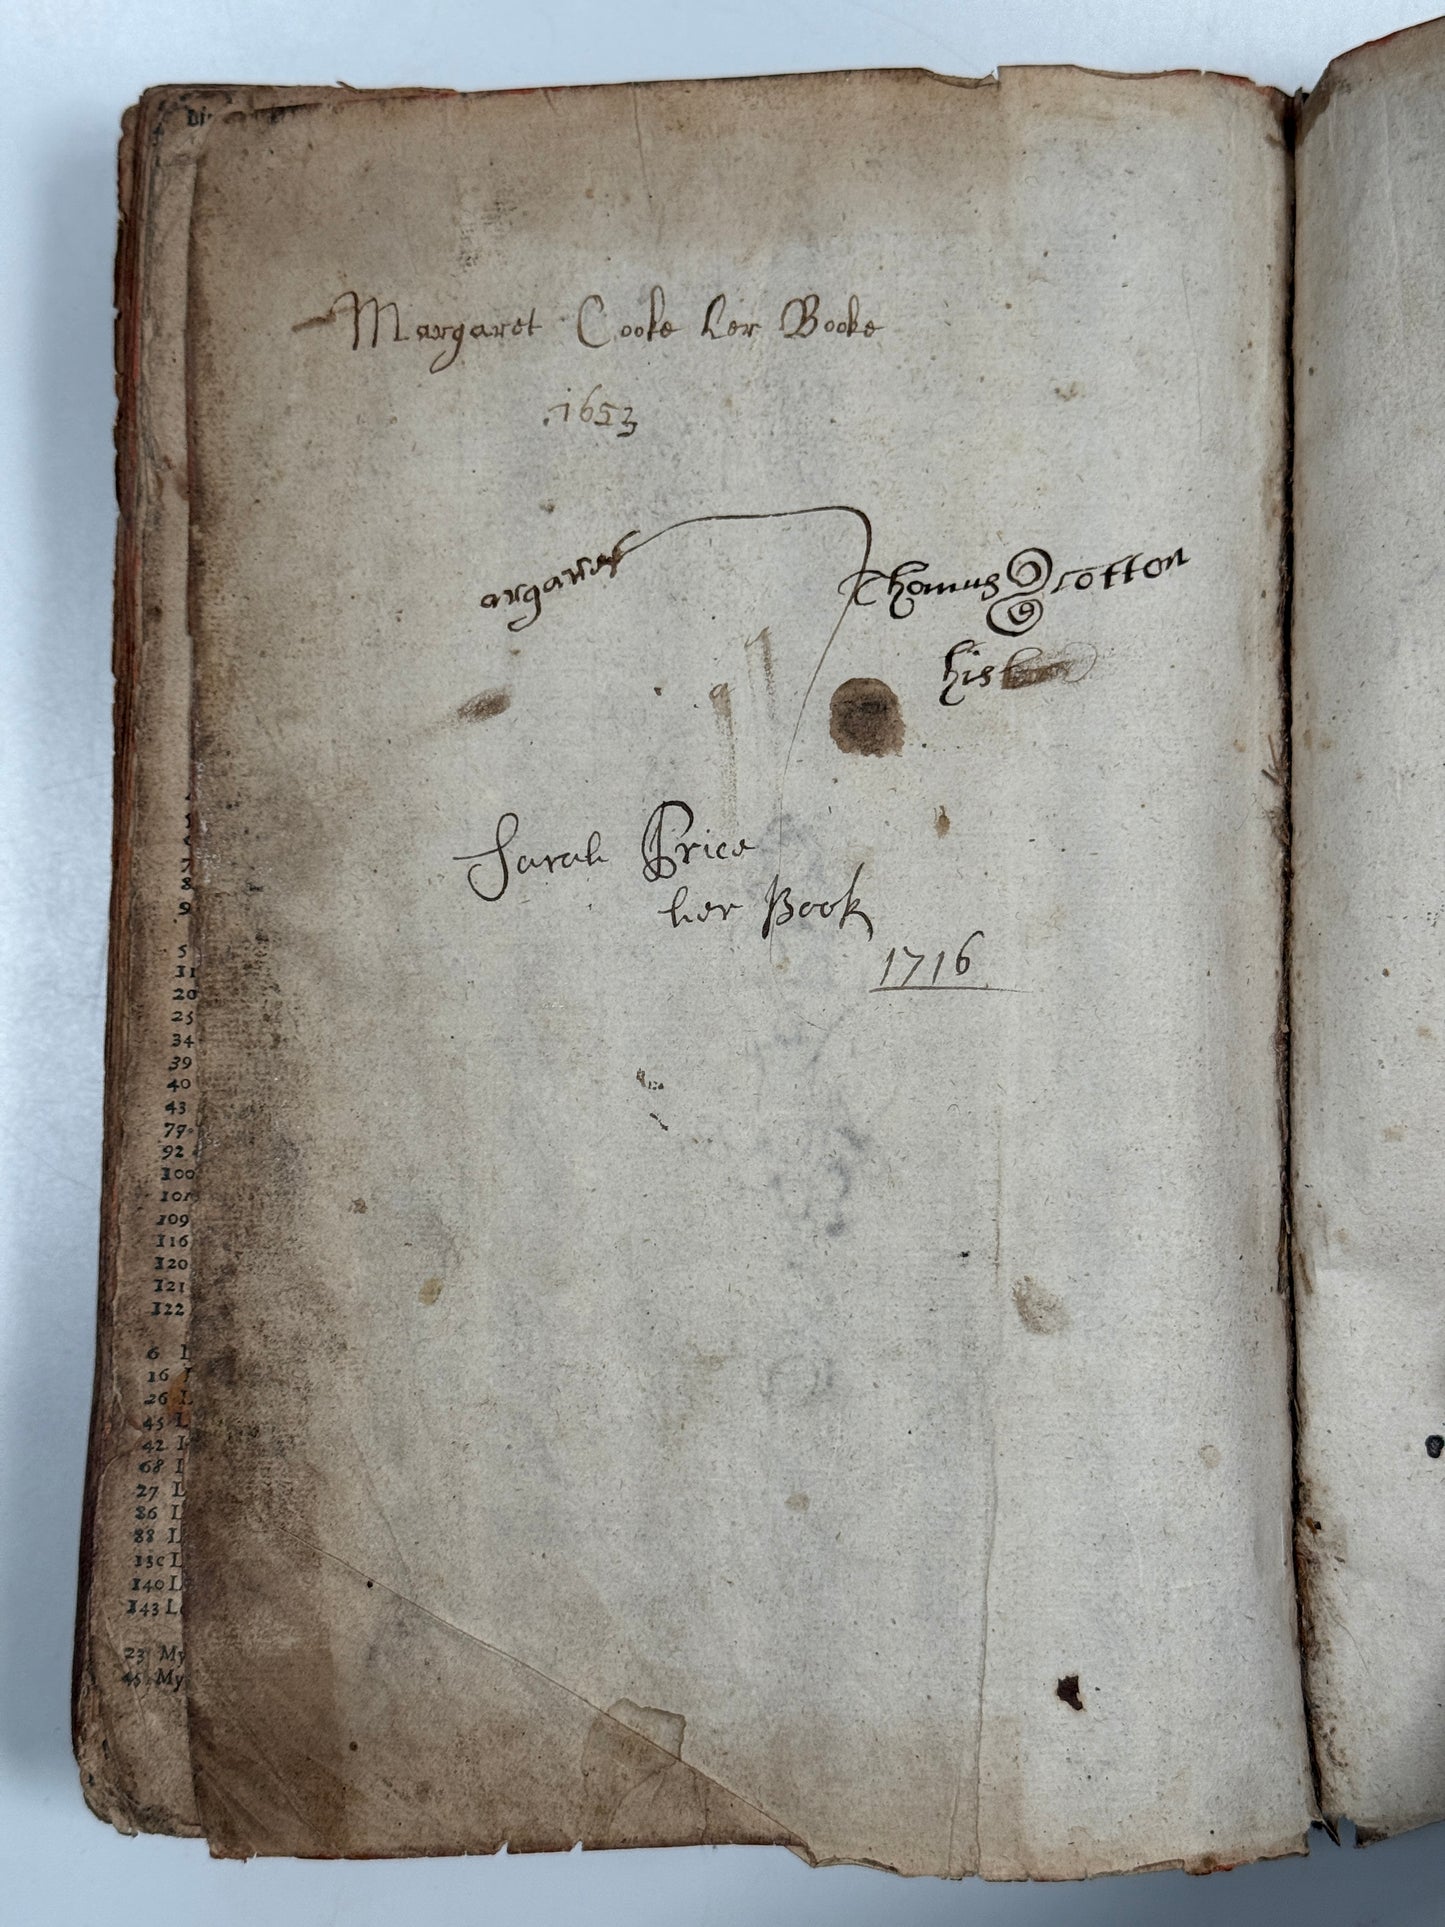 Margaret Cooke her Booke
1653
argaret
Thomas Scotton
his
Sarah Price
her Book
1716
7
8
9
5
11
20
25
34
39
40
43
79
92
100
101
109
116
120
121
122
6
16
26 L
45 L
42
68
27 L
86 L
88
130 L
140 L
143 L
23 My
45 My